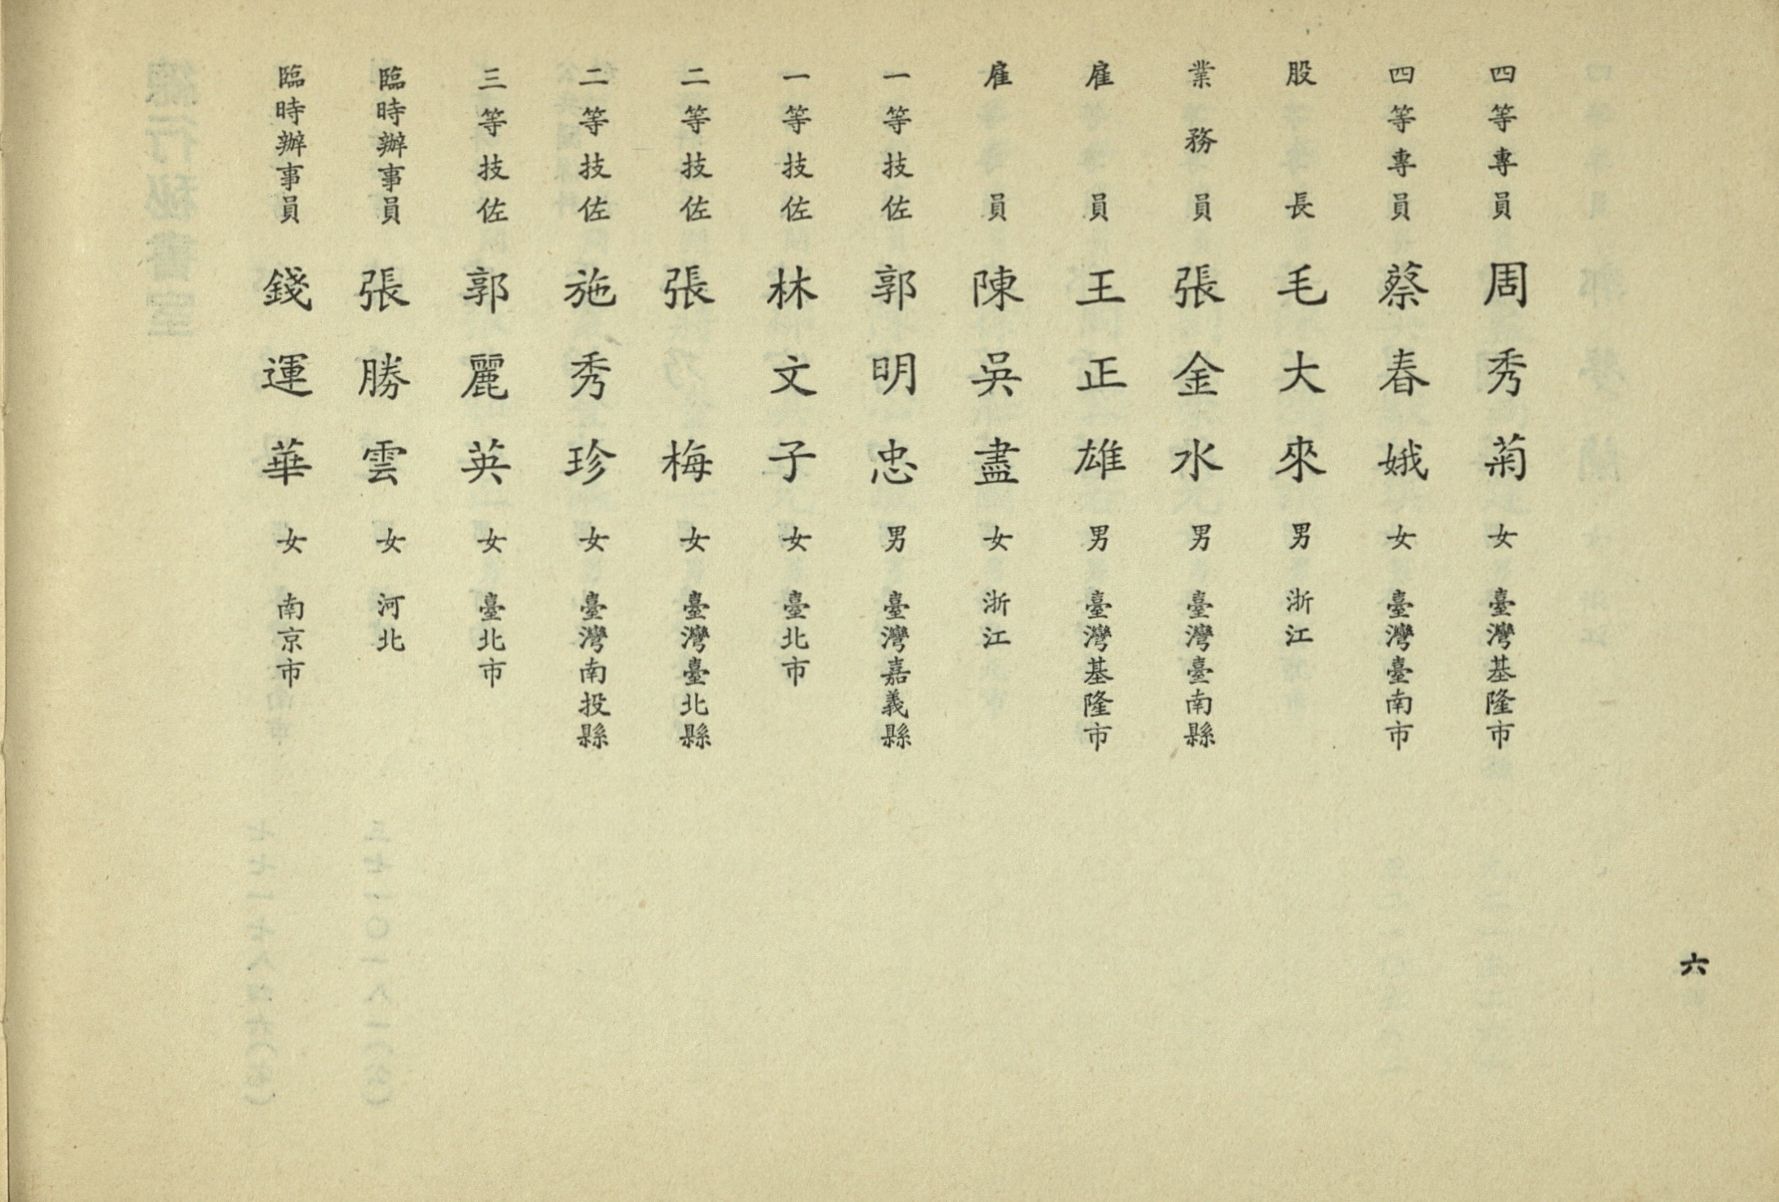 四等專員 周秀菊 女 臺灣基隆市
四等專員 蔡春娥 女 臺灣臺南市
股長 毛大來 男 浙江
業務員 張金水 男 臺灣臺南縣
雇員 王正雄 男 臺灣基隆市
雇員 陳吳盡 女 浙江
一等技佐 郭明忠 男 臺灣嘉義縣
一等技佐 林文子 女 臺北市
二等技佐 張梅 女 臺灣臺北縣
二等技佐 施秀珍 女 臺灣南投縣
三等技佐 郭麗英 女 臺北市
臨時辦事員 張勝雲 女 河北
臨時辦事員 錢運華 女 南京市
六